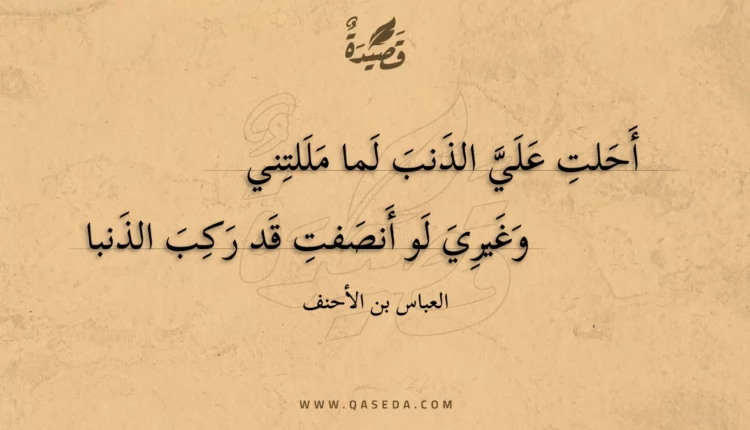 قَصِيْدَةٌ
أَحَلتِ عَلَيَّ الذَنبَ لَما مَلَلتِني
وَغَيرِيَ لَو أَنصَفتِ قَد رَكِبَ الذَنبا
العباس بن الأحنف
WWW.QASEDA.COM